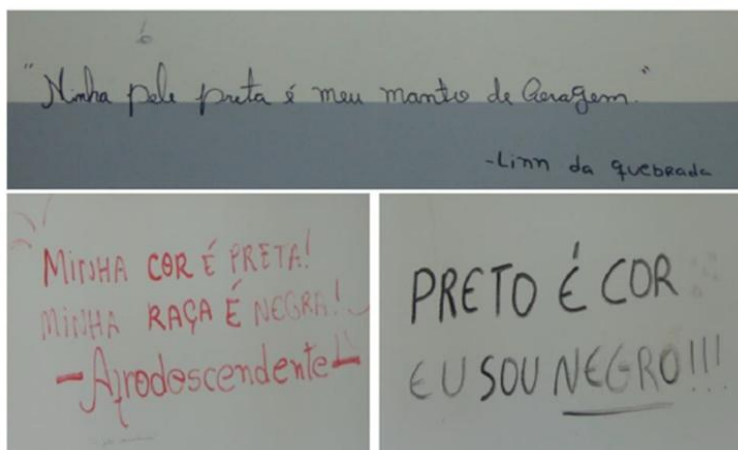 "Minha pele preta é meu manto de coragem."
-Linn da Quebrada
MINHA COR É PRETA!
MINHA RAÇA É NEGRA!
-Afrodescendente-
PRETO É COR
EU SOU NEGRO!!!